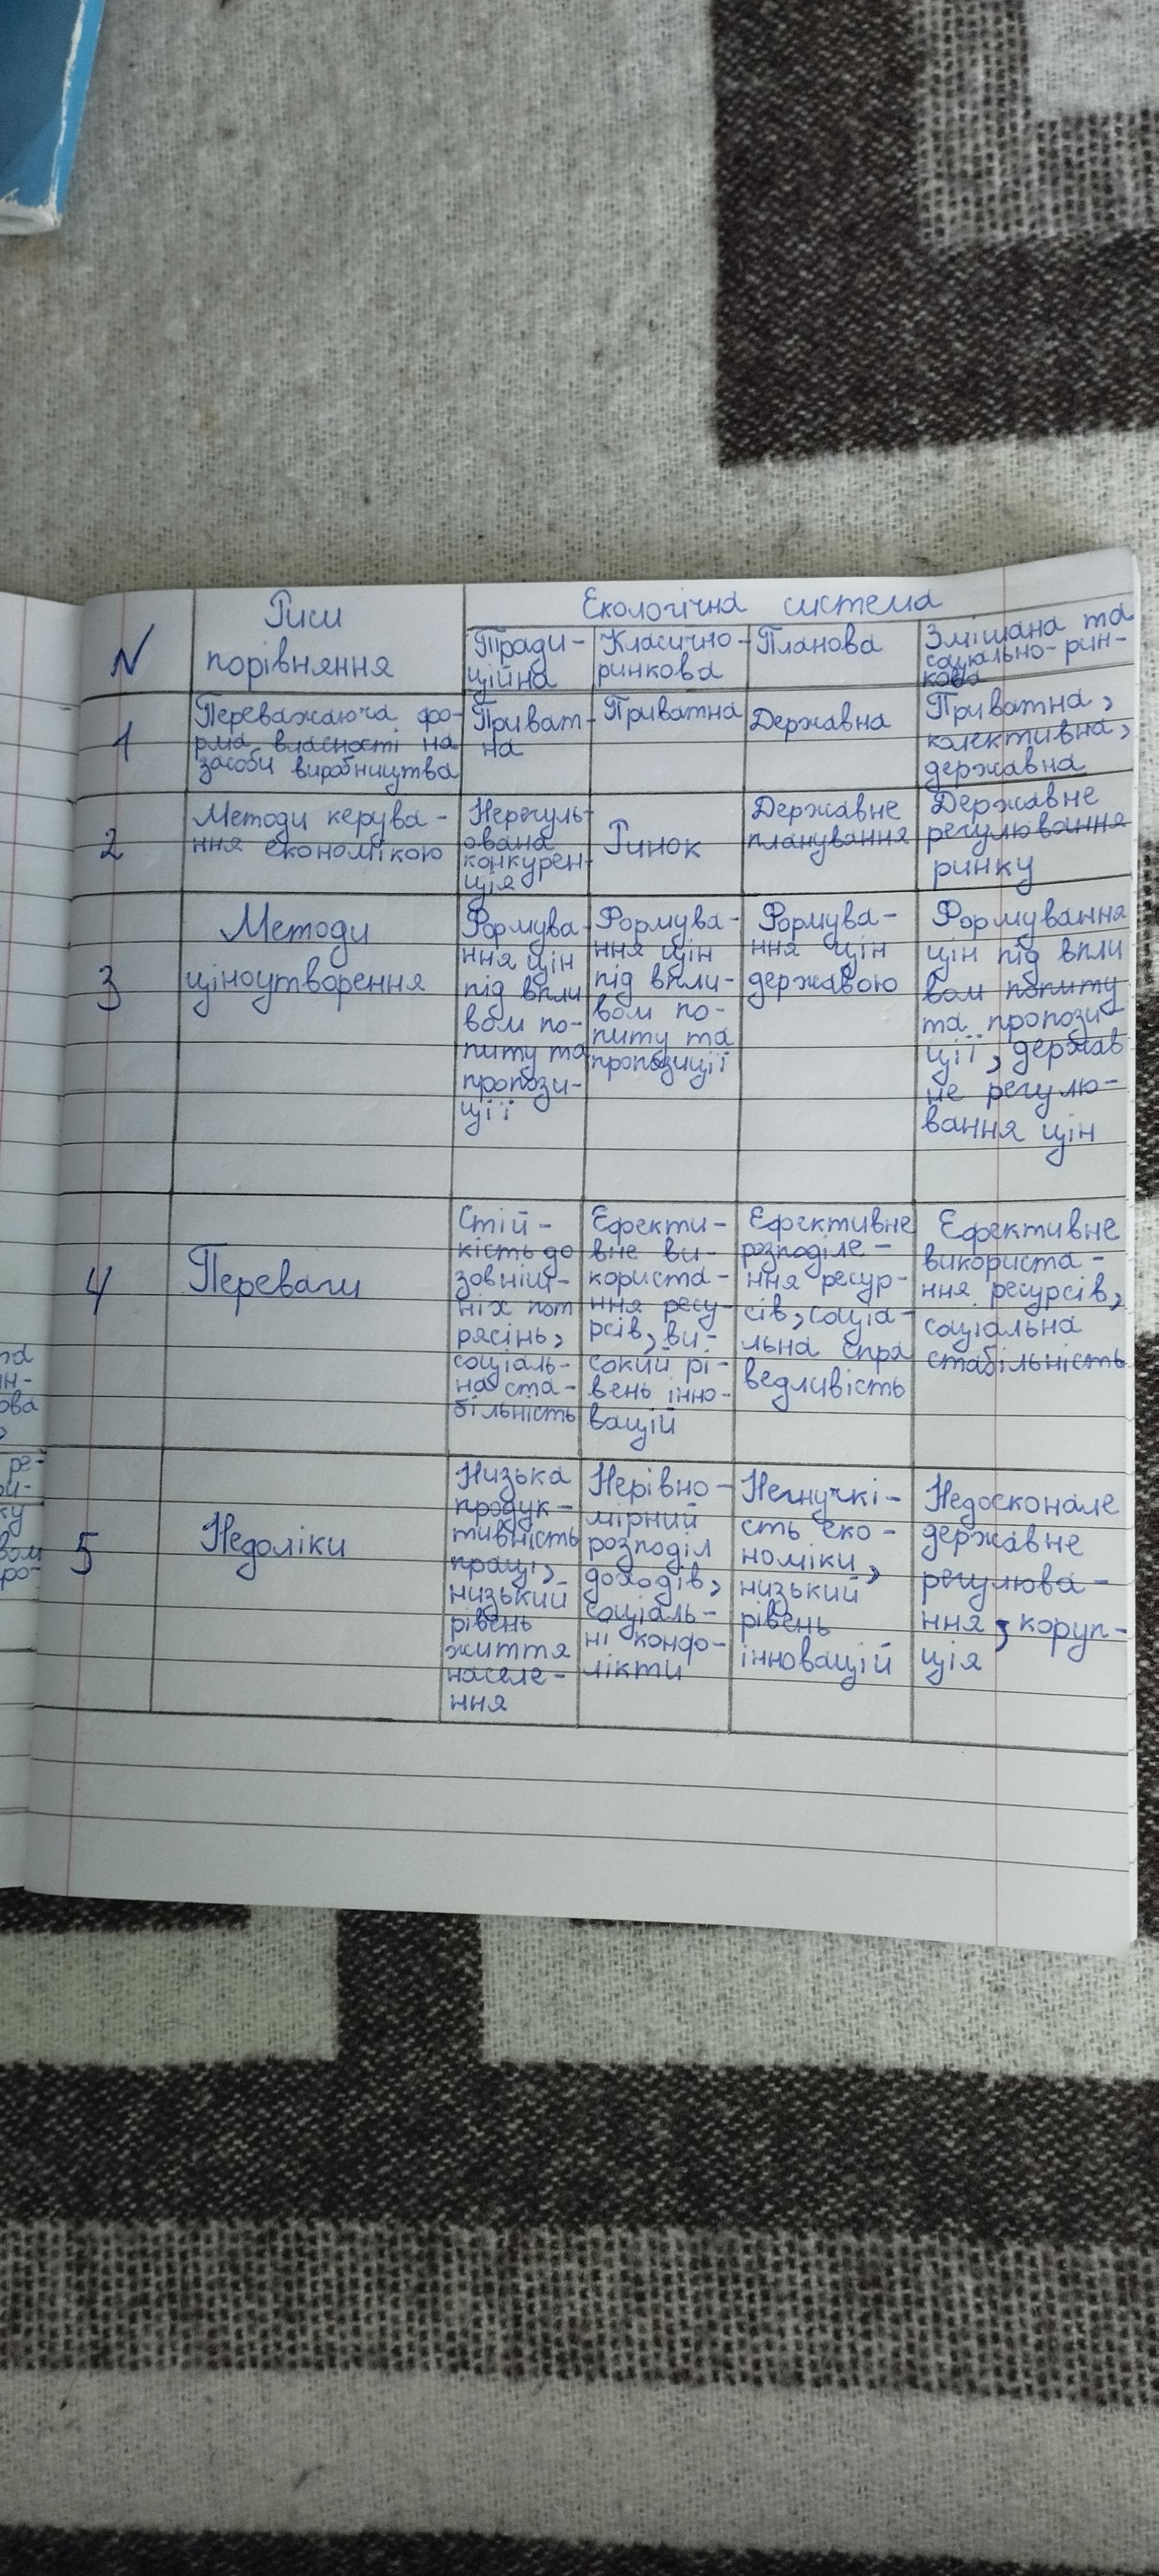 N
Риси
порівняння
Екологічна система
Тради-
ційна
Класично-
ринкова
Планова
Змішана та
соціально-рин-
кова
1
Переважаюча фо-
рма власності на
засоби виробництва
Приват-
на
Приватна
Державна
Приватна,
колективна,
державна
2
Методи керува-
ння економікою
Нерегуль-
ована
конкурен-
ція
Ринок
Державне
планування
Державне
регулювання
ринку
3
Методи
ціноутворення
Формува-
ння цін
під впли
вом по-
питу та
пропози-
ції
Формува-
ння цін
під впли-
вом по-
питу та
пропозиції
Формува-
ння цін
державою
Формування
цін під впли
вом попиту
та пропози-
ції, держав
не регулю-
вання цін
4
Переваги
Стій-
кість до
зовніш-
ніх пот
рясінь,
соціаль-
на ста-
більність
Ефекти-
вне ви-
користа-
ння ресу-
рсів, ви-
сокий рі-
вень інно-
вацій
Ефективне
розподіле-
ння ресур-
сів, соціа-
льна спра
ведливість
Ефективне
використа-
ння ресурсів,
соціальна
стабільність
5
Недоліки
Низька
продук-
тивність
праці,
низький
рівень
життя
населе-
ння
Нерівно-
мірний
розподіл
доходів,
соціаль-
ні конфо-
лікти
Негнучкі-
сть еко-
номіки,
низький
рівень
інновацій
Недосконале
державне
регулюва-
ння, коруп-
ція